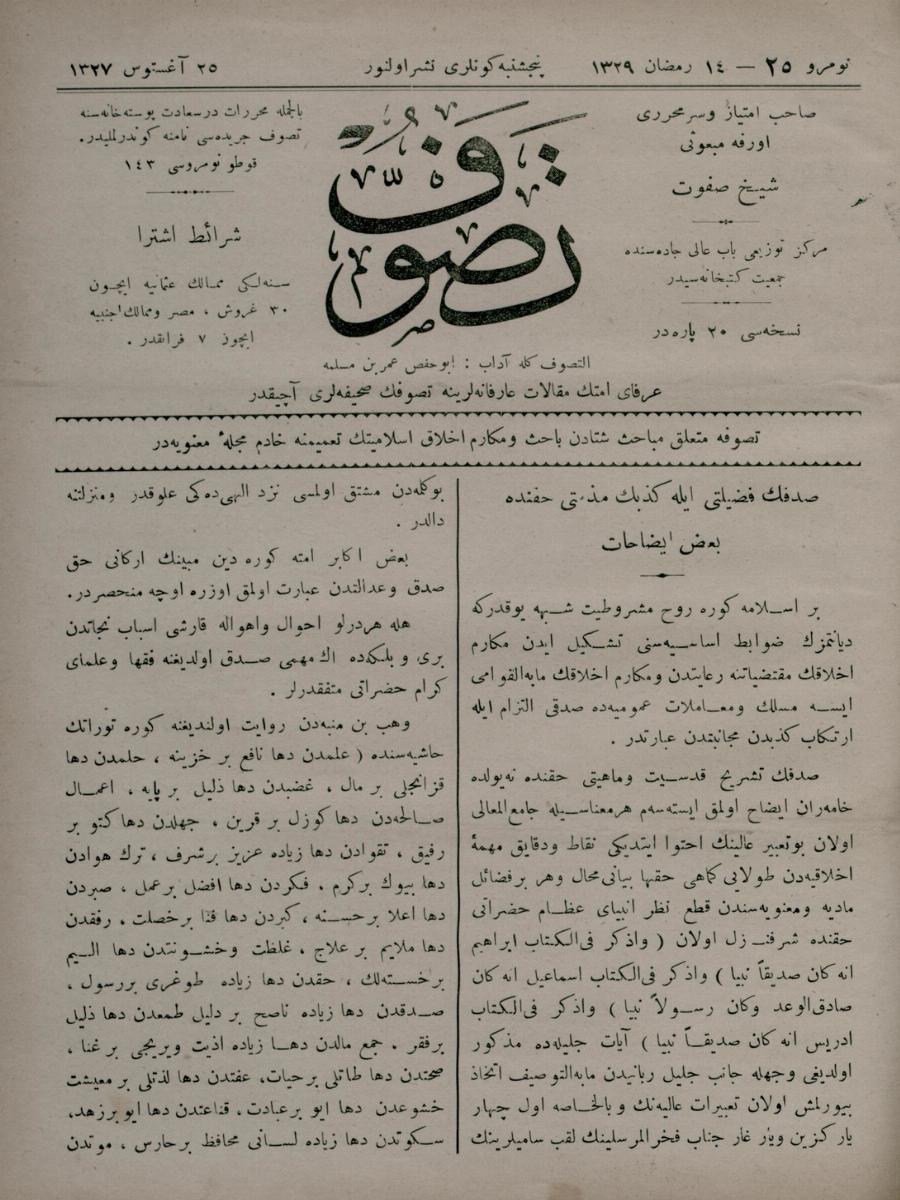 نومرو ٢٥ — ١٤ رمضان ١٣٢٩
پنجشنبه کونلری نشر اولنور
٢٥ آغستوس ١٣٢٧
صاحب امتیاز وسرمحرری
اورفه مبعوثی
شیخ صفوت
مرکز توزیعی باب عالی جاده‌سنده
جمعیت کتبخانه‌سیدر
نسخه‌سی ٢٠ پاره‌در
تصوف
بالجمله محررات درسعادت پوسته‌خانه‌سنه
تصوف جریده‌سی نامنه کوندرلملیدر.
قوطو نومروسی ١٤٣
شرائط اشترا
سنه‌لکی ممالك عثمانیه ایچون
٣٠ غروش ، مصر وممالك اجنبیه
ایچون ٧ فرانقدر .
التصوف کله آداب : ابوحفص عمر بن مسلمه
عرفای امتك مقالات عارفانه‌لرینه تصوفك صحیفه‌لری آچیقدر
تصوفه متعلق مباحث شتادن باحث ومکارم اخلاق اسلامیتك تعمیمنه خادم مجلهٔ معنویه‌در
صدقك فضیلتی ایله کذبك مذمتی حقنده
بعض ایضاحات
بر اسلامه کوره روح مشروطیت شبهه یوقدرکه
دیانتمزك ضوابط اساسیه‌سنی تشکیل ایدن مکارم
اخلاقك مقتضیاتنه رعایتدن ومکارم اخلاقك مابه‌القوامی
ایسه مسلك ومعاملات عمومیه‌ده صدقی التزام ایله
ارتکاب کذبدن مجانبتدن عبارتدر .
صدقك تشریح قدسیت وماهیتی حقنده نه‌یولده
خامه‌ران ایضاح اولمق ایسته‌سه‌م هرمعناسیله جامع‌المعالی
اولان بوتعبیر عالینك احتوا ایتدیکی نقاط ودقایق مهمهٔ
اخلاقیه‌دن طولایی کماهی حقها بیانی محال وهر برفضائل
مادیه ومعنویه‌سندن قطع نظر انبیای عظام حضراتی
حقنده شرفنزل اولان ( واذکر فی‌الکتاب ابراهیم
انه کان صدیقاً نبیا ) واذکر فی‌الکتاب اسماعیل انه کان
صادق‌الوعد وکان رسولاً نبیا ) واذکر فی‌الکتاب
ادریس انه کان صدیقاً نبیا ) آیات جلیله‌ده مذکور
اولدیغی وجهله جانب جلیل ربانیدن مابه‌التوصیف اتخاذ
بیورلمش اولان تعبیرات عالیه‌نك وبالخاصه اول چهار
یار کزین ویار غار جناب فخرالمرسلینك لقب سامیلرینك
بوکله‌دن مشتق اولمسی نزد الهی‌ده‌کی علوقدر ومنزلتنه
دالدر .
بعض اکابر امته کوره دین مبینك ارکانی حق
صدق وعدالتدن عبارت اولمق اوزره اوچه منحصردر.
هله هردرلو احوال واهواله قارشی اسباب نجاتدن
بری وبلکه‌ده اك مهمی صدق اولدیغنه فقها وعلمای
کرام حضراتی متفقدرلر .
وهب بن منبه‌دن روایت اولندیغنه کوره توراتك
حاشیه‌سنده ( علمدن دها نافع بر خزینه ، حلمدن دها
قزانجلی بر مال ، غضبدن دها ذلیل بر پایه ، اعمال
صالحه‌دن دها کوزل بر قرین ، جهلدن دها کتو بر
رفیق ، تقوادن دها زیاده عزیز برشرف ، ترك هوادن
دها بیوك برکرم . فکردن دها افضل برعمل ، صبردن
دها اعلا برحسنه ، کبردن دها فنا برخصلت . رفقدن
دها ملایم بر علاج ، غلظت وخشونتدن دها الیم
برخسته‌لك ، حقدن دها زیاده طوغری بررسول ،
صدقدن دها زیاده ناصح بر دلیل طمعدن دها ذلیل
برفقر . جمع مالدن دها زیاده اذیت ویریجی بر غنا ،
صحتدن دها طاتلی برحیات، عفتدن دها لذتلی برمعیشت
خشوعدن دها ایو برعبادت ، قناعتدن دها ایو برزهد،
سکوتدن دها زیاده لسانی محافظ برحارس ، موتدن